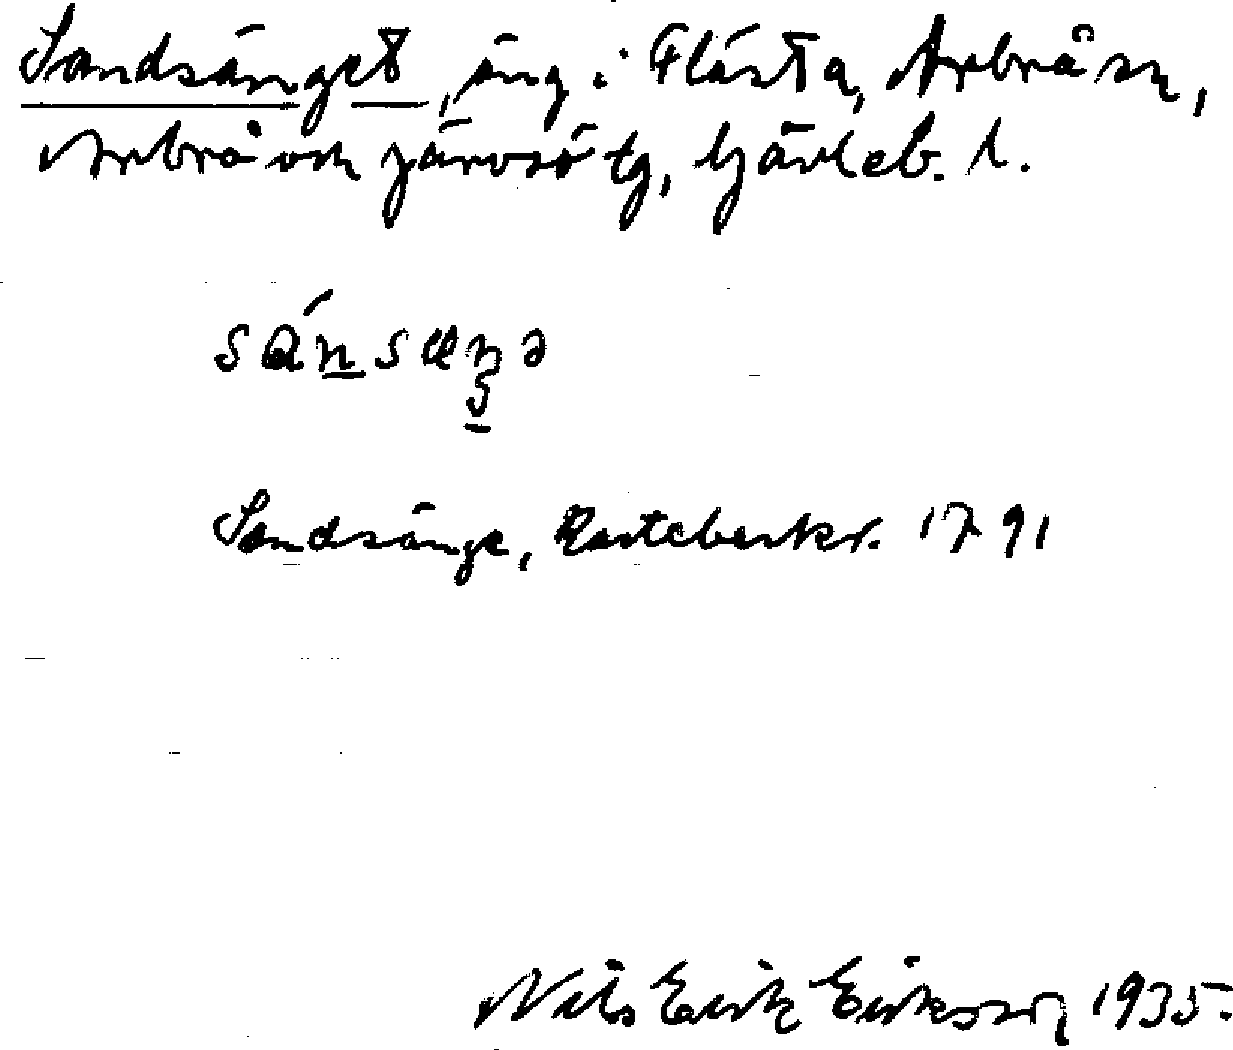 Sandsänget, äng i Flästa, Arbrå sn,
Arbrå och Järvsö tg, Gävleb. l.
Sandsänge, Kartebeskr. 1791
Nils Erik Eriksson 1935.